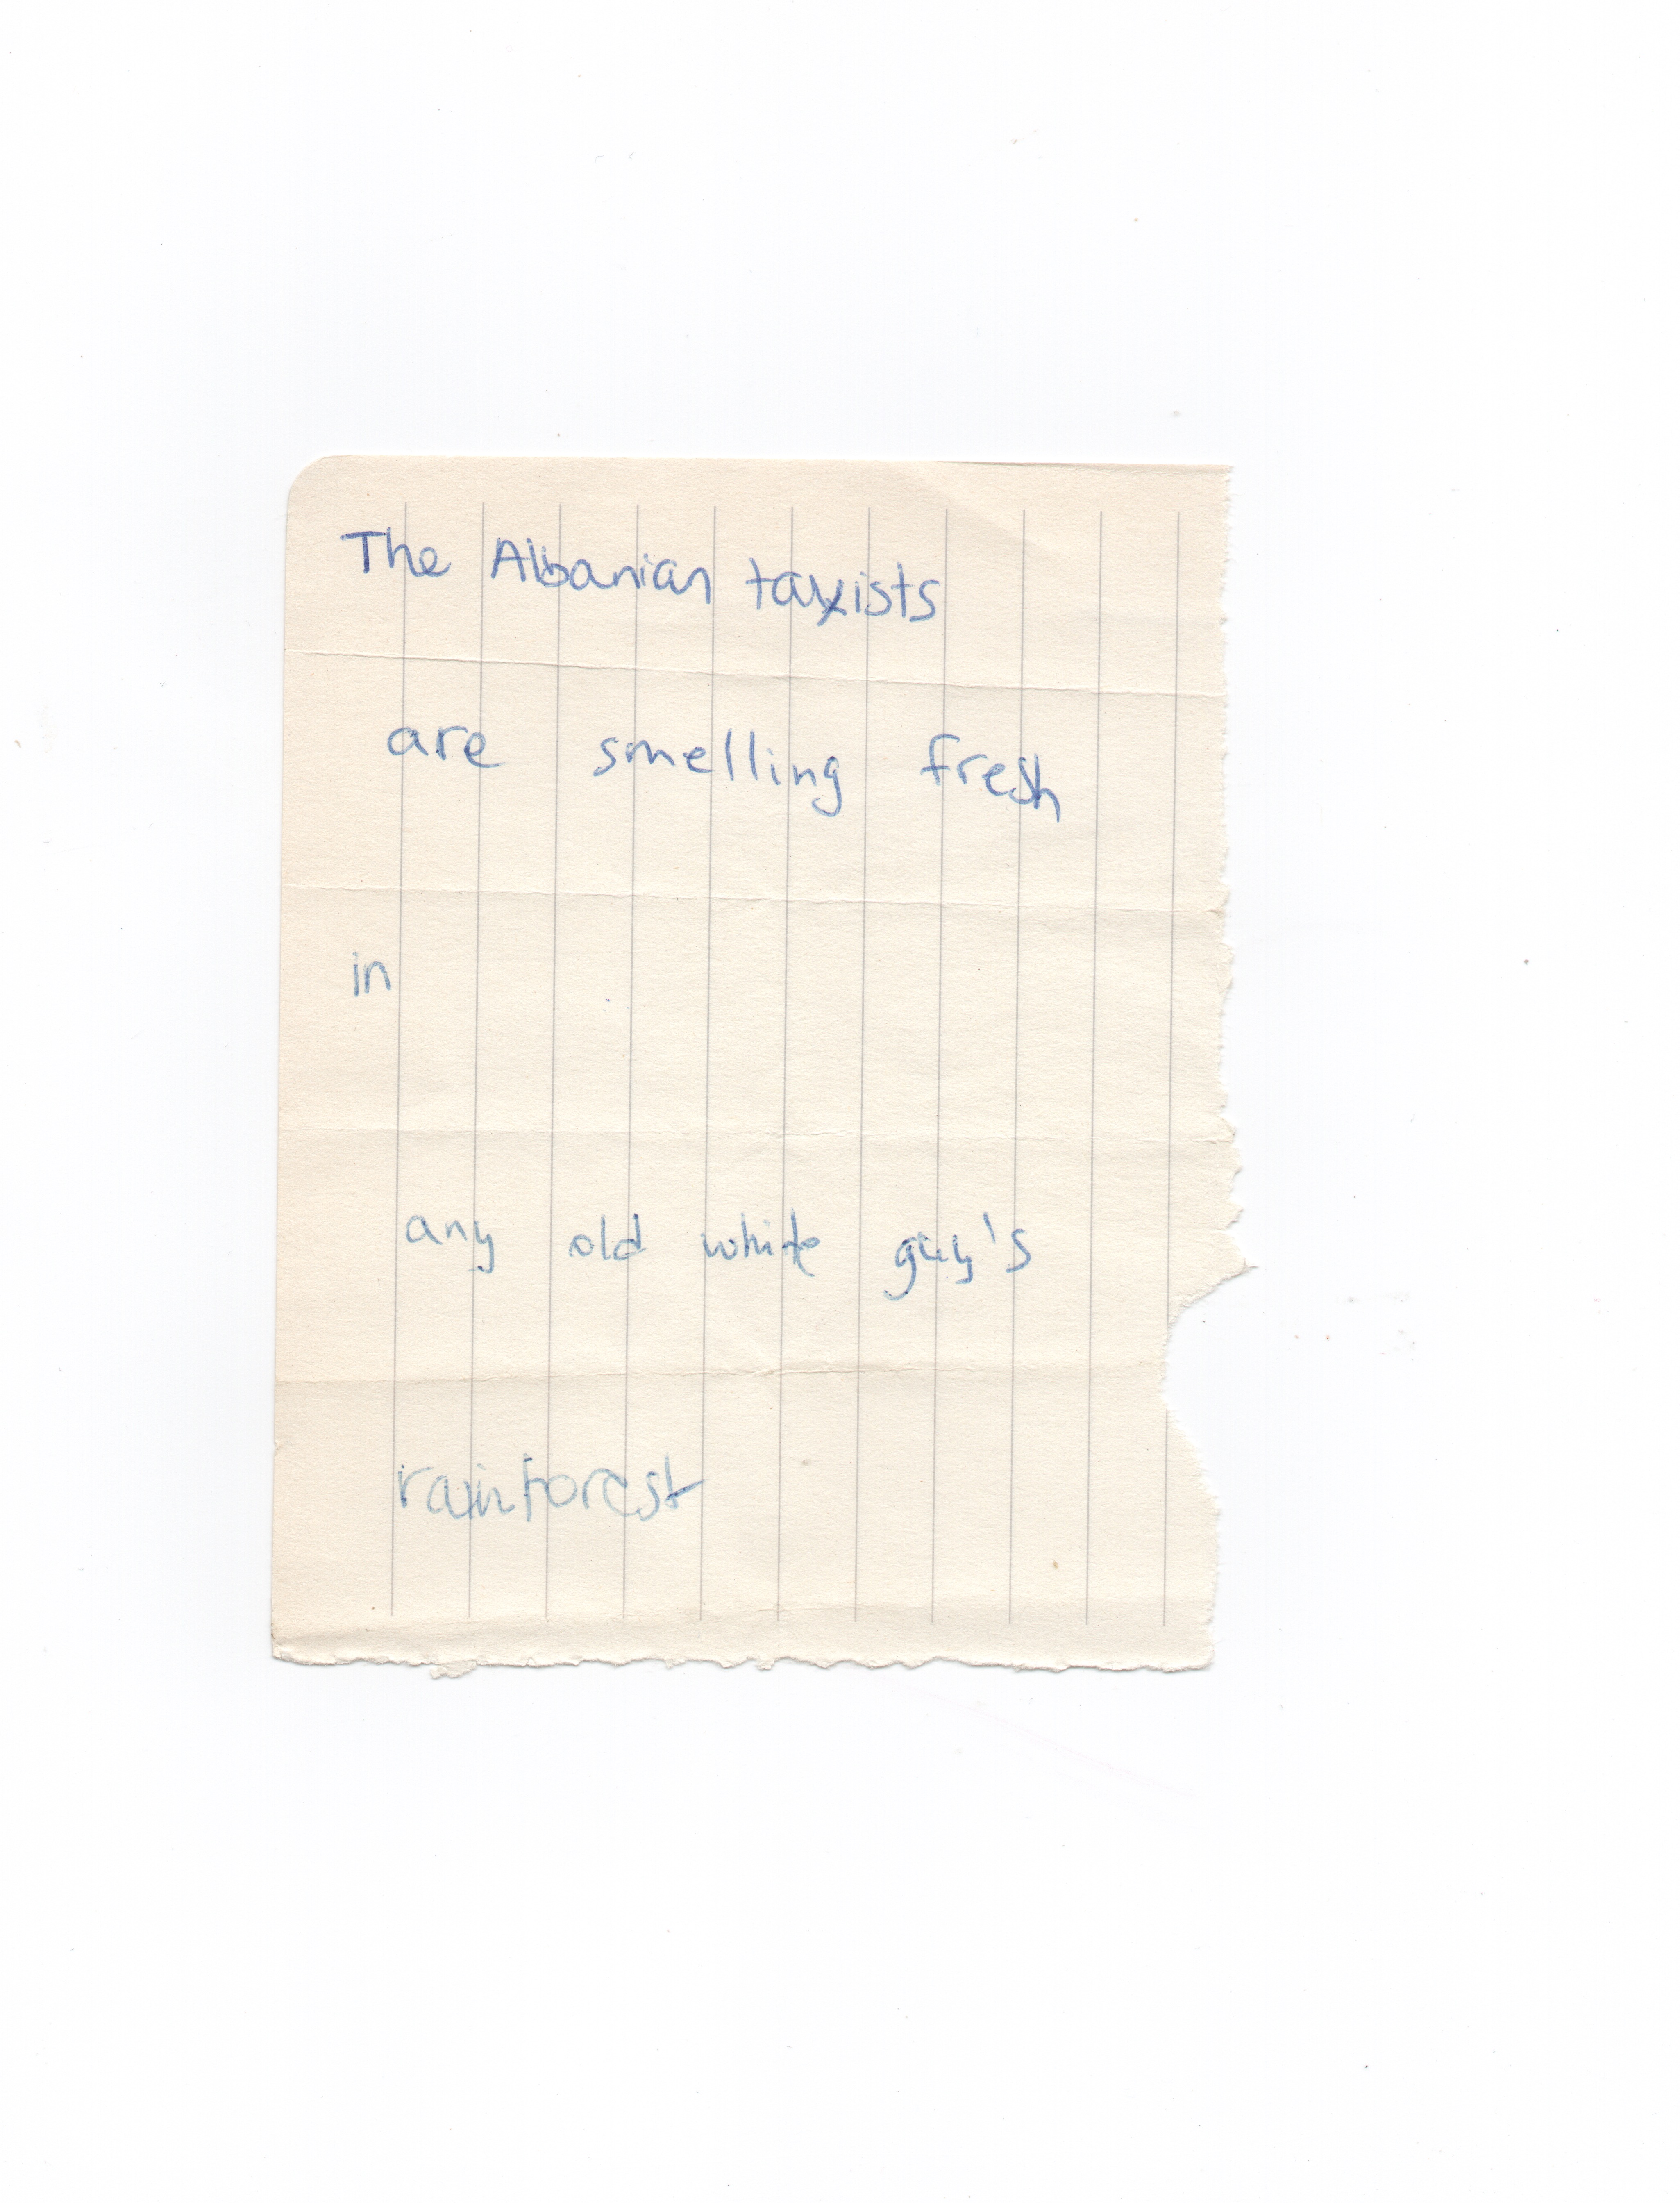 The Albanian taxists
are smelling fresh
in
any old white guy's
rainforest